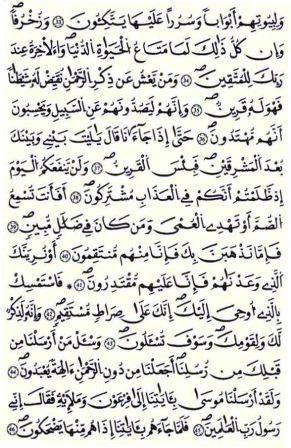 وَلِبُيُوتِهِمُ أَبْوَاباً وَسُرُراً عَلَيْهَا يَتَّكِـُٔونَ ٣٣ وَزُخْرُفاً
وَإِن كُلُّ ذَٰلِكَ لَمَا مَتَاعُ الْحَيَوٰةِ الدُّنْيَا وَالَاخِرَةُ عِندَ
رَبِّكَ لِلْمُتَّقِينَ ٣٤ وَمَن يَعْشُ عَن ذِكْرِ الرَّحْمَٰنِ نُقَيِّضْ لَهُ شَيْطَٰناً
فَهُوَ لَهُ قَرِينٌ ٣٥ وَإِنَّهُمْ لَيَصُدُّونَهُمْ عَنِ السَّبِيلِ وَيَحْسِبُونَ
أَنَّهُم مُّهْتَدُونَ ٣٦ حَتَّىٰ إِذَا جَاءَٰنَا قَالَ يَٰلَيْتَ بَيْنِي وَبَيْنَكَ
بُعْدَ الْمَشْرِقَيْنِ فَبِيسَ الْقَرِينُ ٣٧ وَلَنْ يَّنفَعَكُمُ الْيَوْمَ
إِذ ظَّلَمْتُمُ أَنَّكُمْ فِي الْعَذَابِ مُشْتَرِكُونَ ٣٨ أَفَأَنتَ تُسْمِعُ
الصُّمَّ أَوْ تَهْدِي الْعُمْيَ وَمَن كَانَ فِي ضَلَٰلٍ مُّبِينٍ ٣٩
فَإِمَّا نَذْهَبَنَّ بِكَ فَإِنَّا مِنْهُم مُّنتَقِمُونَ ٤٠ أَوْ نُرِيَنَّكَ
الَّذِي وَعَدْنَٰهُمْ فَإِنَّا عَلَيْهِم مُّقْتَدِرُونَ ٤١ فَاسْتَمْسِكْ
بِالَّذِي أُوحِيَ إِلَيْكَ إِنَّكَ عَلَىٰ صِرَاطٍ مُّسْتَقِيمٍ ٤٢ وَإِنَّهُ لَذِكْرٌ
لَّكَ وَلِقَوْمِكَ وَسَوْفَ تُسْـَٔلُونَ ٤٣ وَسْـَٔلْ مَنَ أَرْسَلْنَا مِن
قَبْلِكَ مِن رُّسُلِنَا أَجَعَلْنَا مِن دُونِ الرَّحْمَٰنِ ءَالِهَةً يُعْبَدُونَ ٤٤
وَلَقَدَ أَرْسَلْنَا مُوسَىٰ بِـَٔايَٰتِنَا إِلَىٰ فِرْعَوْنَ وَمَلَإِيهِ فَقَالَ إِنِّي
رَسُولُ رَبِّ الْعَٰلَمِينَ ٤٥ فَلَمَّا جَاءَهُم بِـَٔايَٰتِنَا إِذَا هُم مِّنْهَا يَضْحَكُونَ ٤٦